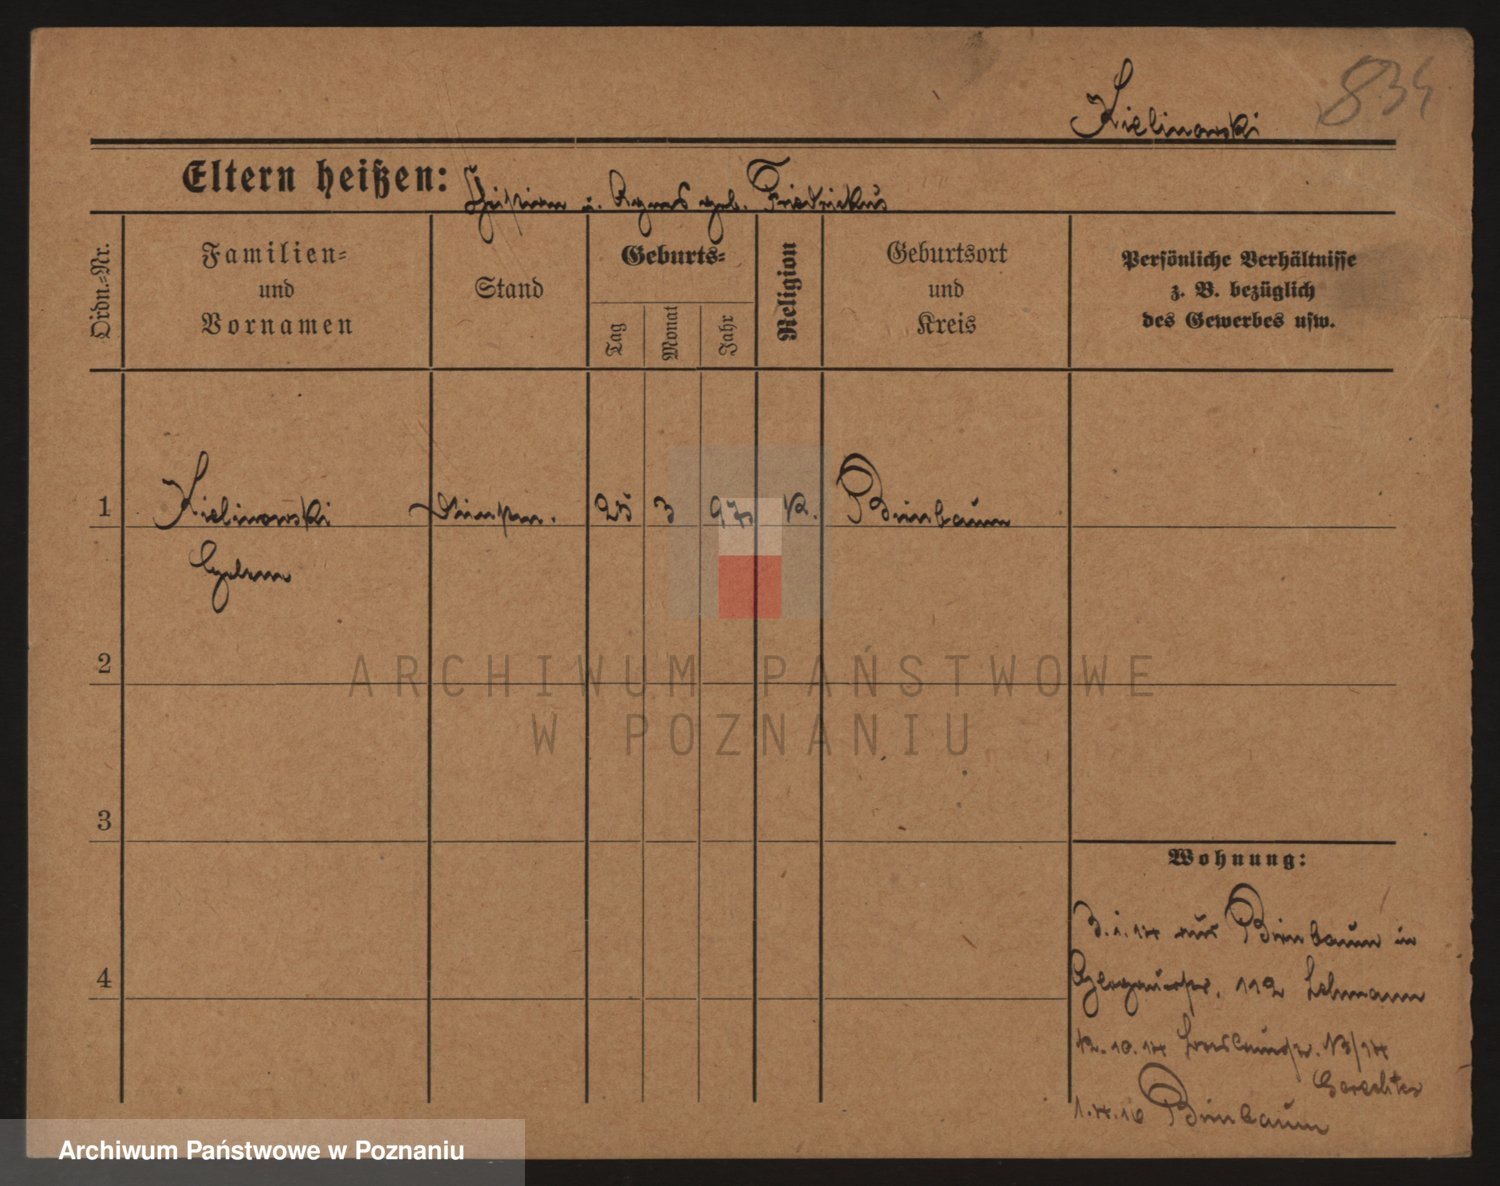 834
Kielinowski
Eltern heißen: u. Agnes geb.
Ordn.-Nr.
Familien-
und
Vornamen
Stand
Geburts-
Tag
Monat
Jahr
Religion
Geburtsort
und
Kreis
Persönliche Verhältnisse
z. B. bezüglich
des Gewerbes usw.
1 Kielinowski 25 3 97 K. Birnbaum
2
3
4
Wohnung:
3.1.14 aus Birnbaum in
Glogauerstr. 112 Lehmann
12.10.14 13/14
1.4.16 Birnbaum
ARCHIWUM PAŃSTWOWE
W POZNANIU
Archiwum Państwowe w Poznaniu